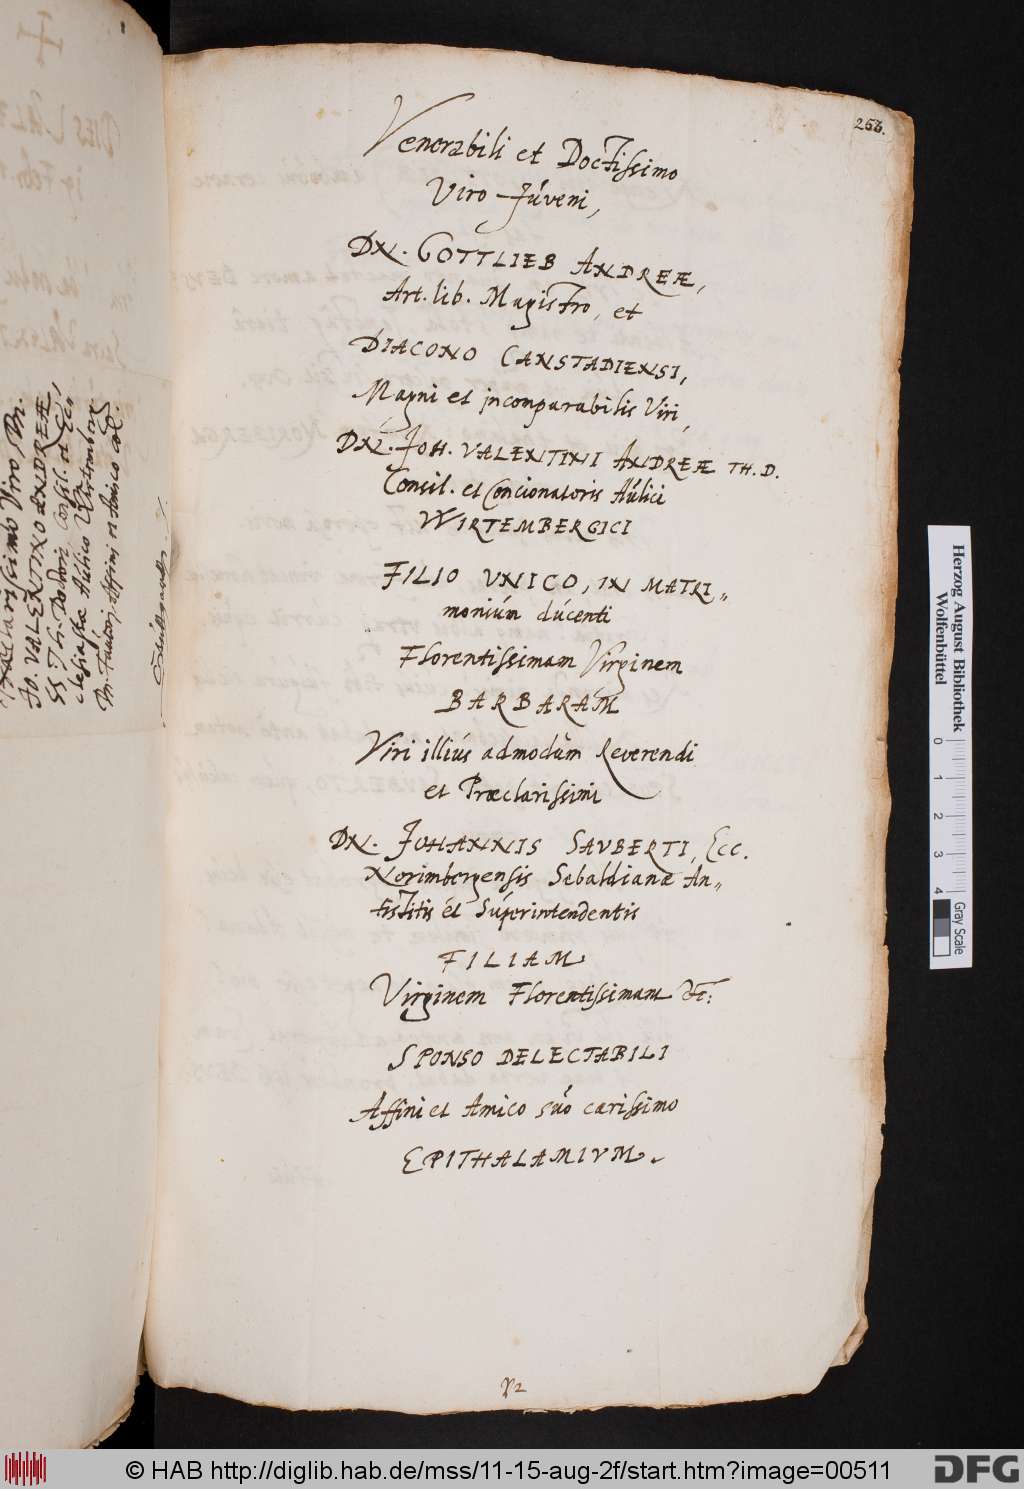 256.
Venerabili et Doctissimo
Viro Júveni,
DN. GOTTLIEB ANDREÆ,
Art. lib. Magistro, et
DIACONO CANSTADIENSI,
Magni et incomparabilis Viri,
DN. JOH. VALENTINI ANDREÆ TH. D.
Consil. et Concionatoris Aúlici
WIRTEMBERGICI
FILIO VNICO, IN MATRI„
moniúm dúcenti
Florentissimam Virginem
BARBARAM
Viri illiús admodùm Reverendi
et Præclarissimi
DN. JOHANNIS SAVBERTI, Ecc.
Norimbergensis Sebaldianæ An„
tistitis et Súperintendentis
FILIAM
Virginem Florentissimam &c:
SPONSO DELECTABILI
Affini et Amico súo carissimo
EPITHALAMIVM.
Præclarissimo Viro, Dn.
Jo. VALENTINO ANDREÆ
SS Th. Doctori Consil. et Ecc
lesiastæ Aúlico
Affini et Amico col.
Herzog August Bibliothek
Wolfenbüttel
0 1 2 3 4
Gray Scale
© HAB http://diglib.hab.de/mss/11-15-aug-2f/start.htm?image=00511
DFG